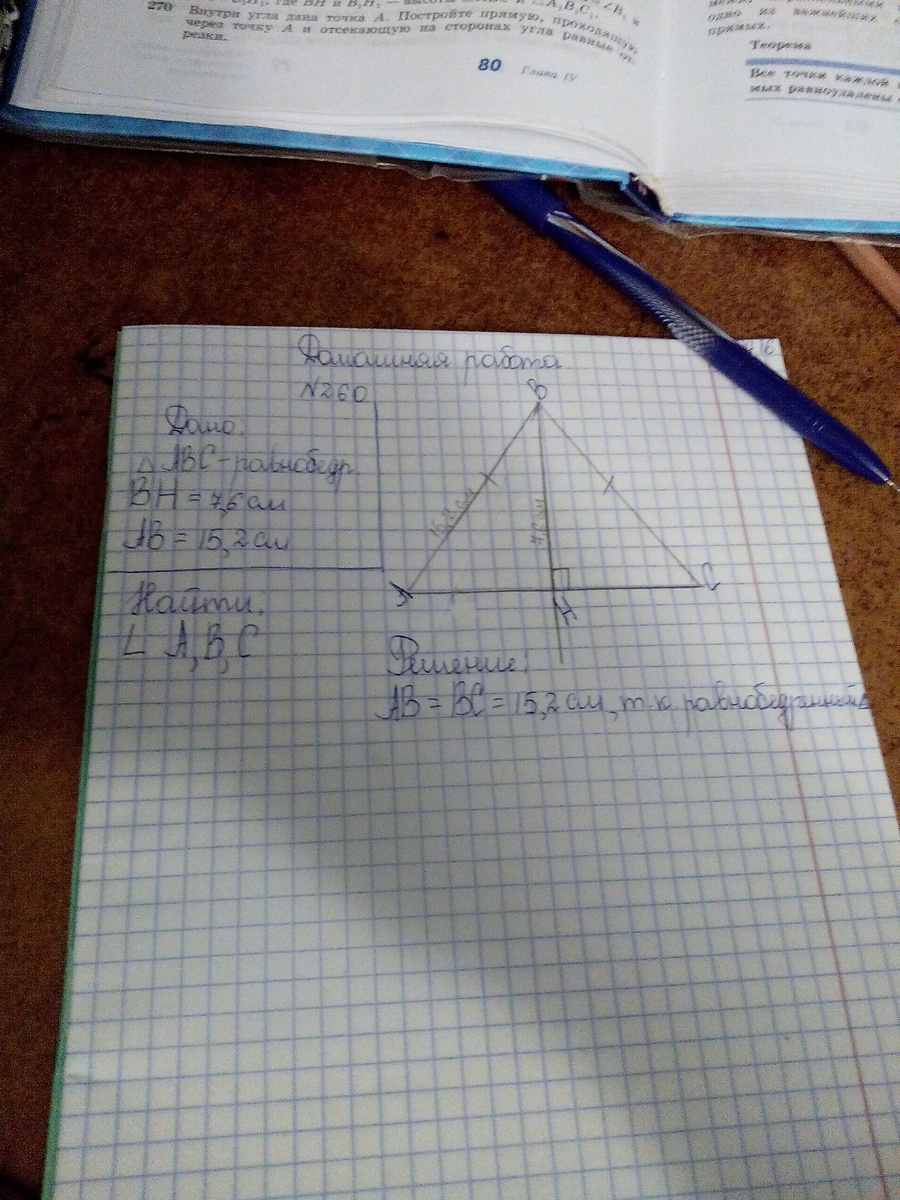 270
Внутри угла дана точка A. Постройте прямую, проходящую
через точку A и отсекающую на сторонах угла равные от-
резки.
80 Глава IV
одно из важнейших
прямых.
Теорема
Все точки каждой
мых равноудалены
Домашняя работа
N260
Дано:
△ ABC - равнобедр.
BH = 7,6 см
AB = 15,2 см
Найти:
∠ A, B, C
B
15,2 см
A
C
H
Решение:
AB = BC = 15,2 см, т.к. равнобедренный △